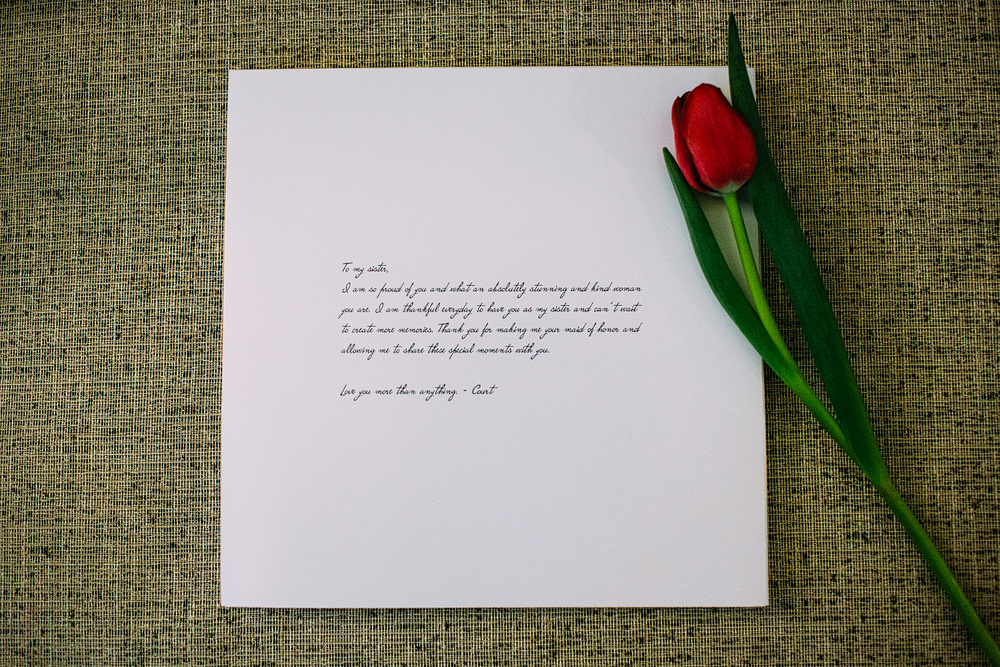 To my sister,
I am so proud of you and what an absolutely stunning and kind woman
you are. I am thankful everyday to have you as my sister and can't wait
to create more memories. Thank you for making me your maid of honor and
allowing me to share these special moments with you.
Love you more than anything. - Court